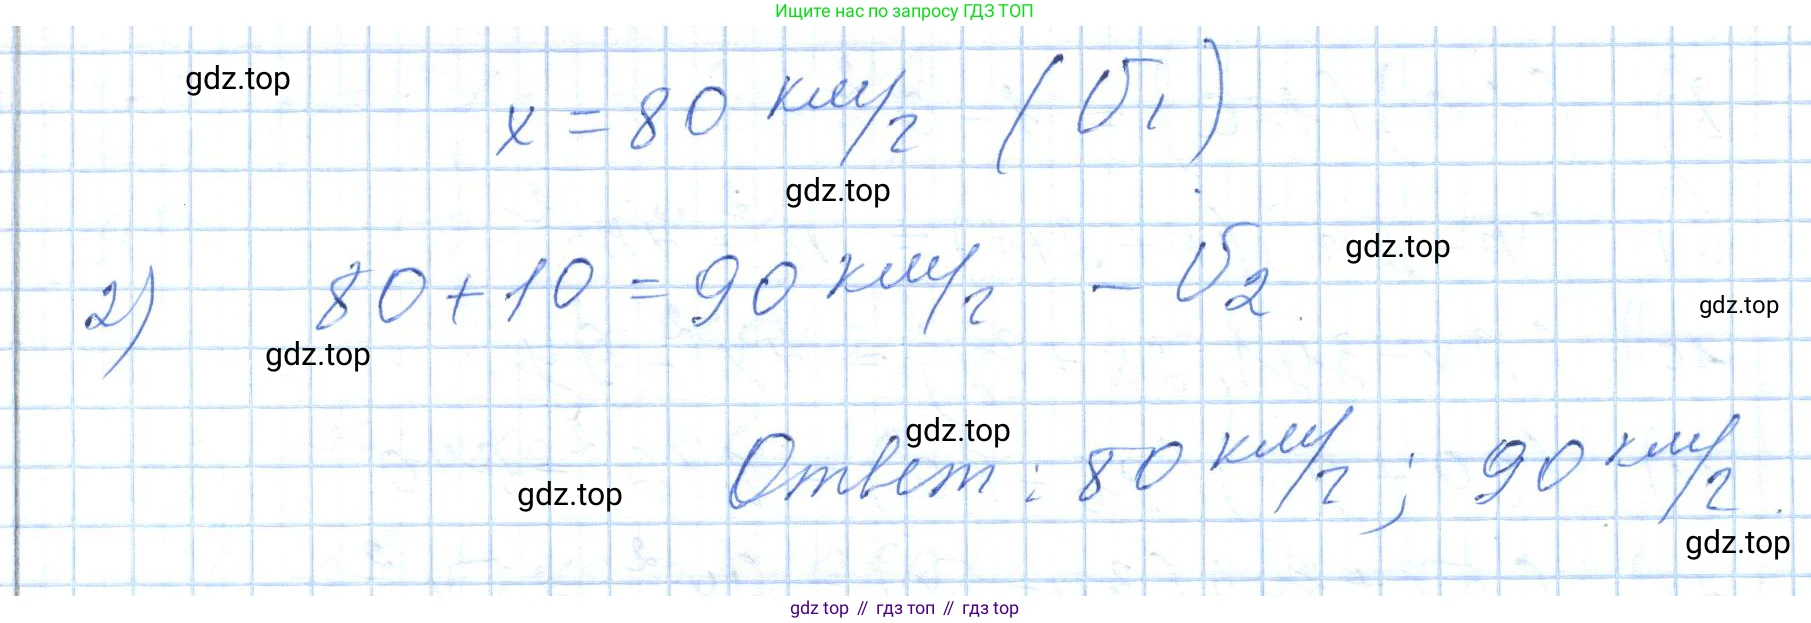 Ищите нас по запросу ГДЗ ТОП
gdz.top
x = 80 км/ч (v₁)
gdz.top
gdz.top
2) 80 + 10 = 90 км/ч - v₂.
gdz.top
gdz.top
gdz.top
Ответ: 80 км/ч; 90 км/ч.
gdz.top
gdz.top
gdz top // гдз топ // гдз top